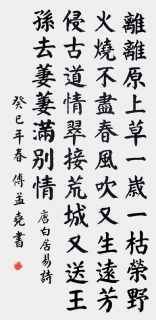 離離原上草一歲一枯榮野
火燒不盡春風吹又生遠芳
侵古道情翠接荒城又送王
孫去萋萋滿別情 唐白居易詩
癸巳年春 傅益堯書